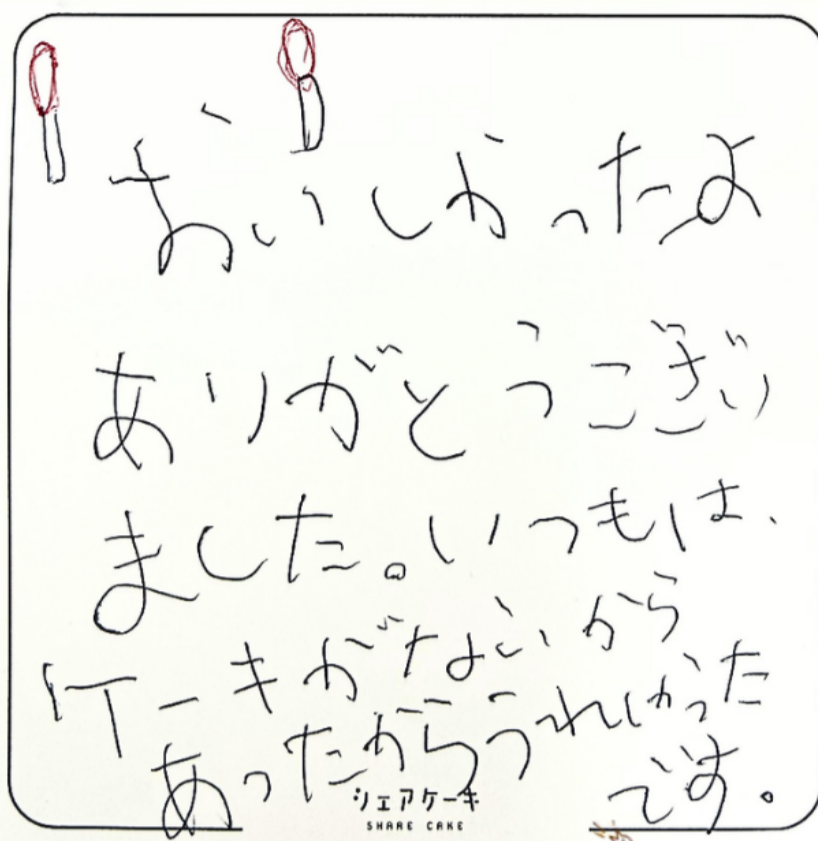 おいしかったよ
ありがとうこざい
ました。いつもは、
ケーキがないから
あったからうれしかった
です。
シェアケーキ
SHARE CAKE